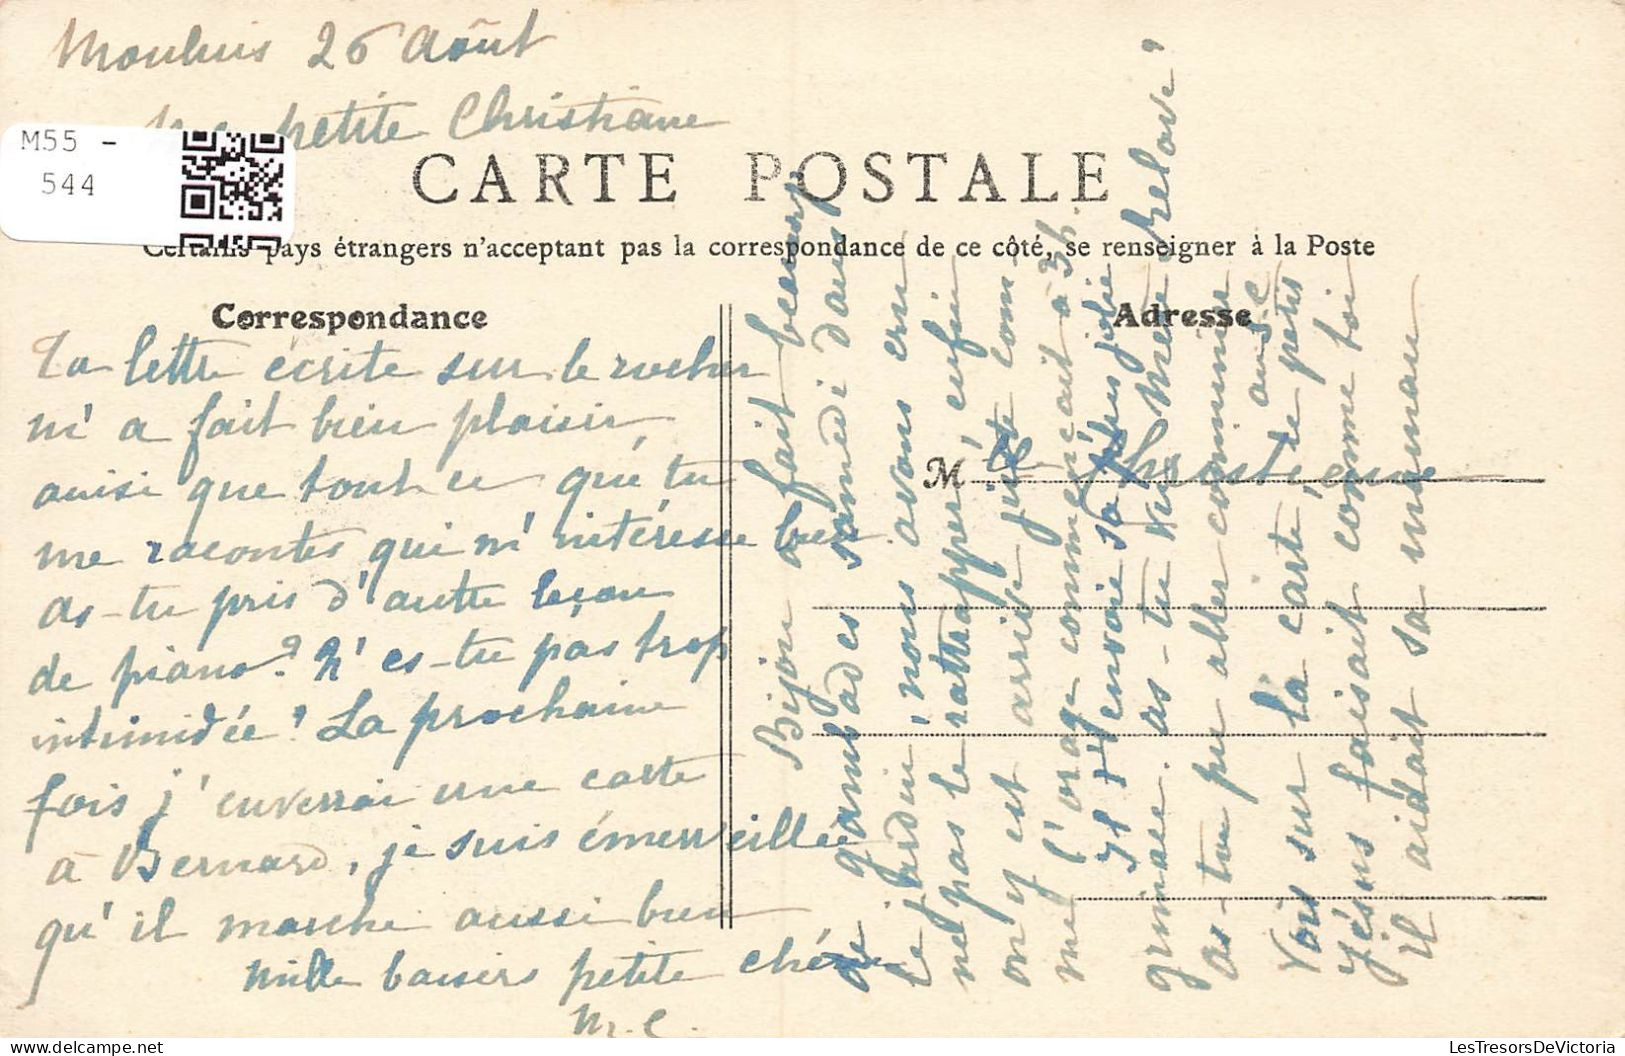 Moulins 26 Août
Ma petite Christiane
M55 -
544
CARTE POSTALE
Certains pays étrangers n'acceptant pas la correspondance de ce côté, se renseigner à la Poste
Correspondance
Adresse
Ta lettre écrite sur le rocher
m'a fait bien plaisir
ainsi que tout ce que tu
me racontes qui m'intéresse bien
as-tu pris d'autre leçon
de piano? N'es-tu pas trop
intimidée? La prochaine
fois j'enverrai une carte
à Bernard, je suis émerveillée
qu'il marche aussi bien
Mille baisers petite chérie
M. C.
M lle Christiane
Bijou a fait beaucoup
de gambades samedi dans
le jardin, nous avons cru
ne pas le rattrapper, enfin
on y est arrivé juste com-
me l'orage commençait à 3h.
Il t'envoie sa plus jolie
grimace. as-tu vu Mère Pelové?
as-tu pu aller communier
Vois sur la carte, le petit
Jésus faisait comme toi
il aidait sa maman
LesTresorsDeVictoria.com